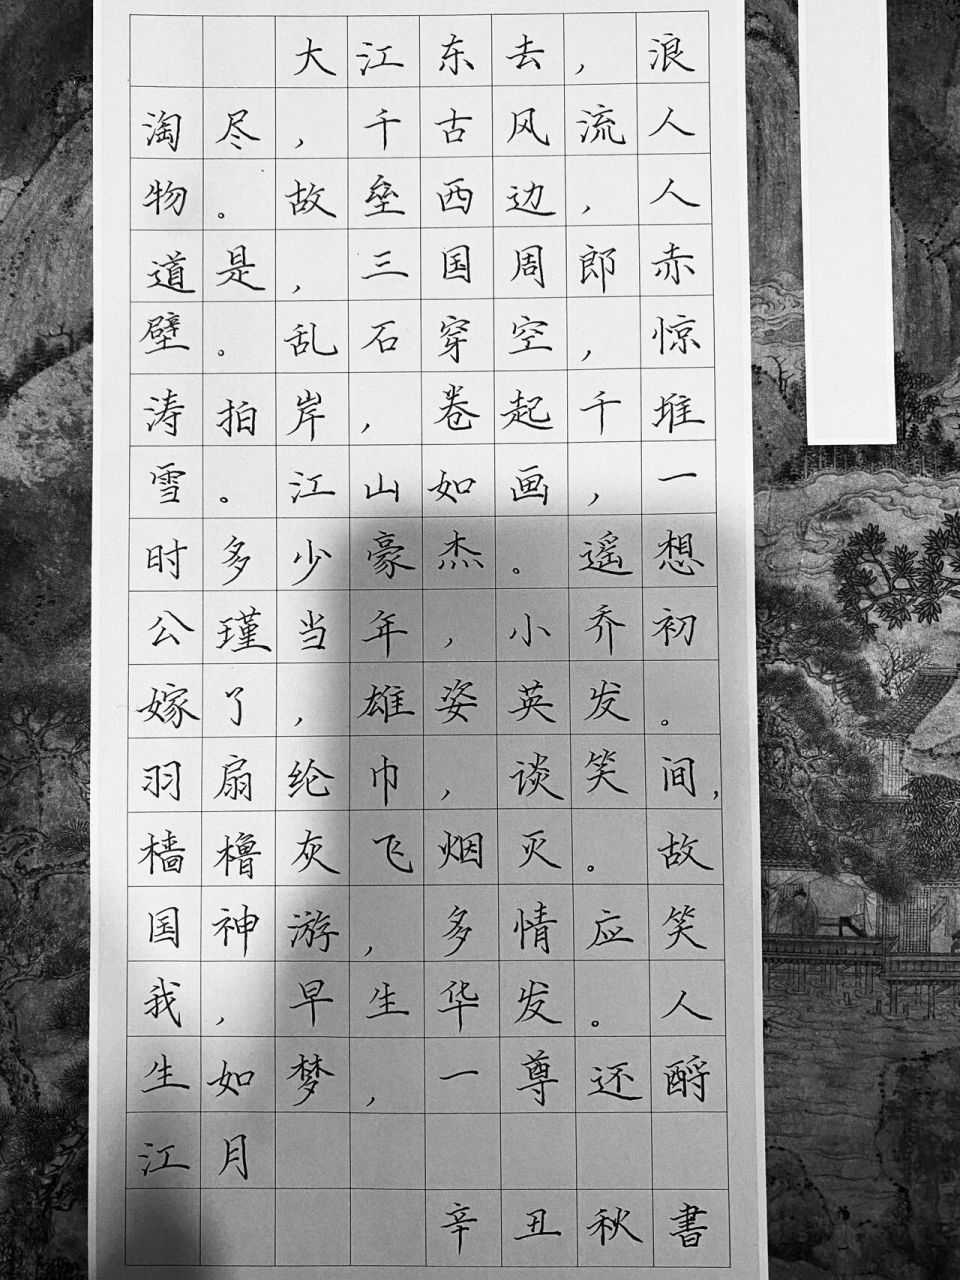 大江东去，浪
淘尽，千古风流人
物。故垒西边，人
道是，三国周郎赤
壁。乱石穿空，惊
涛拍岸，卷起千堆
雪。江山如画，一
时多少豪杰。遥想
公瑾当年，小乔初
嫁了，雄姿英发。
羽扇纶巾，谈笑间，
樯橹灰飞烟灭。故
国神游，多情应笑
我，早生华发。人
生如梦，一尊还酹
江月
辛丑秋書